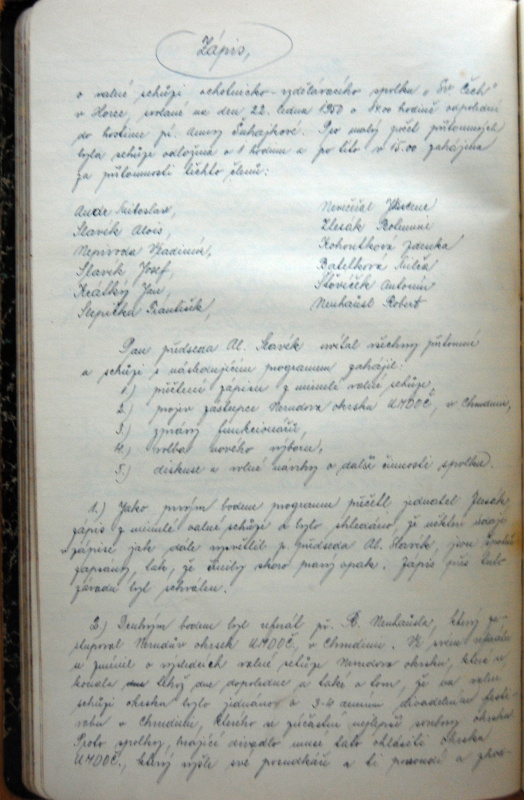 Zápis,
o valné schůzi ochotnicko-vzdělávacího spolku "Sv. Čech"
v Horce, svolané na den 22. ledna 1950 o 14.00 hodině odpolední
do hostince pí. Anny . Pro malý počet přítomných
byla schůze odložena o 1 hodinu a po této v 15.00 zahájena
za přítomnosti těchto členů:
Aude Miloslav,
Slavík Alois,
Nepivoda Vladimír,
Slavík Josef,
Krátký Jan,
Slepička František,
Nevečeřal
Zlesák Bohumil
Kohoutková Zdenka
Batelková Milča
Antonín
Neuhäusl Robert
Pan předseda Al. Slavík uvítal všechny přítomné
a schůzi s následujícím programem zahájil:
1.) přečtení zápisu z minulé valné schůze,
2.) projev zástupce Nerudova okrsku ÚMDOČ, v Chrudimi,
3.) zprávy funkcionářů,
4.) volba nového výboru,
5.) diskuse a volné návrhy o další činnosti spolku.
1.) Jako prvým bodem programu přečetl jednatel
zápis z minulé valné schůze a bylo shledáno, že některé údaje
v zápise jak dále vysvětlil p. předseda Al. Slavík, jsou
zapsány tak, že skoro pravý opak. Zápis přes tuto
závadu byl schválen.
2.) Druhým bodem byl referát př. R. Neuhäusla, který za-
stupoval Nerudův okrsek ÚMDOČ, v Chrudimi. Ve svém referátu
se zmínil o výsledcích valné schůze Nerudova okrsku, která se
konala téhož dne dopoledne a také o tom, že na valné
schůzi okrsku bylo jednáno o 3-4 denním divadelním festi-
valu v Chrudimi, kterého se zúčastní nejlepší soubory okrsku.
Proto spolky, hrající divadlo musí tato ohlásiti okrsku
ÚMDOČ., který vyšle své posudkáře a ti posoudí a zhod-